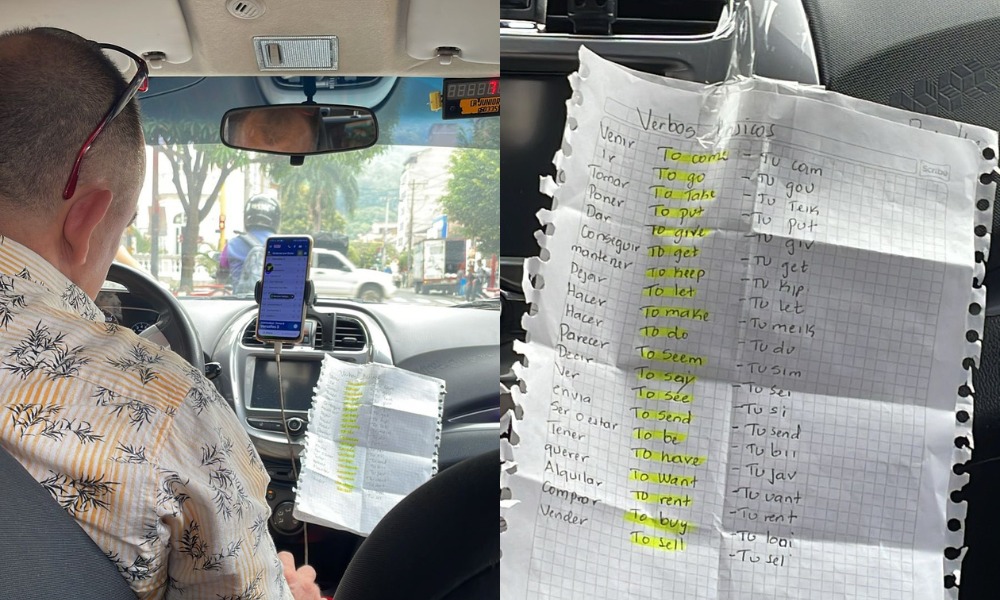 Verbos
Venir To come - Tu cam
Ir To go - Tu gou
Tomar To Take - Tu Teik
Poner To put - Tu put
Dar To give - Tu giv
Conseguir To get - Tu get
mantener To keep - Tu kip
Dejar To let - Tu let
Hacer To make - Tu meik
Hacer To do - Tu du
Parecer To seem - Tu sim
Decir To say - Tu sei
Ver To see - Tu si
envia To send - Tu send
Ser o estar To be - Tu bii
Tener To have - Tu jav
querer To want - Tu uant
Alquilar To rent - Tu rent
Comprar To buy - Tu baai
Vender To sell - Tu sel
Scribe